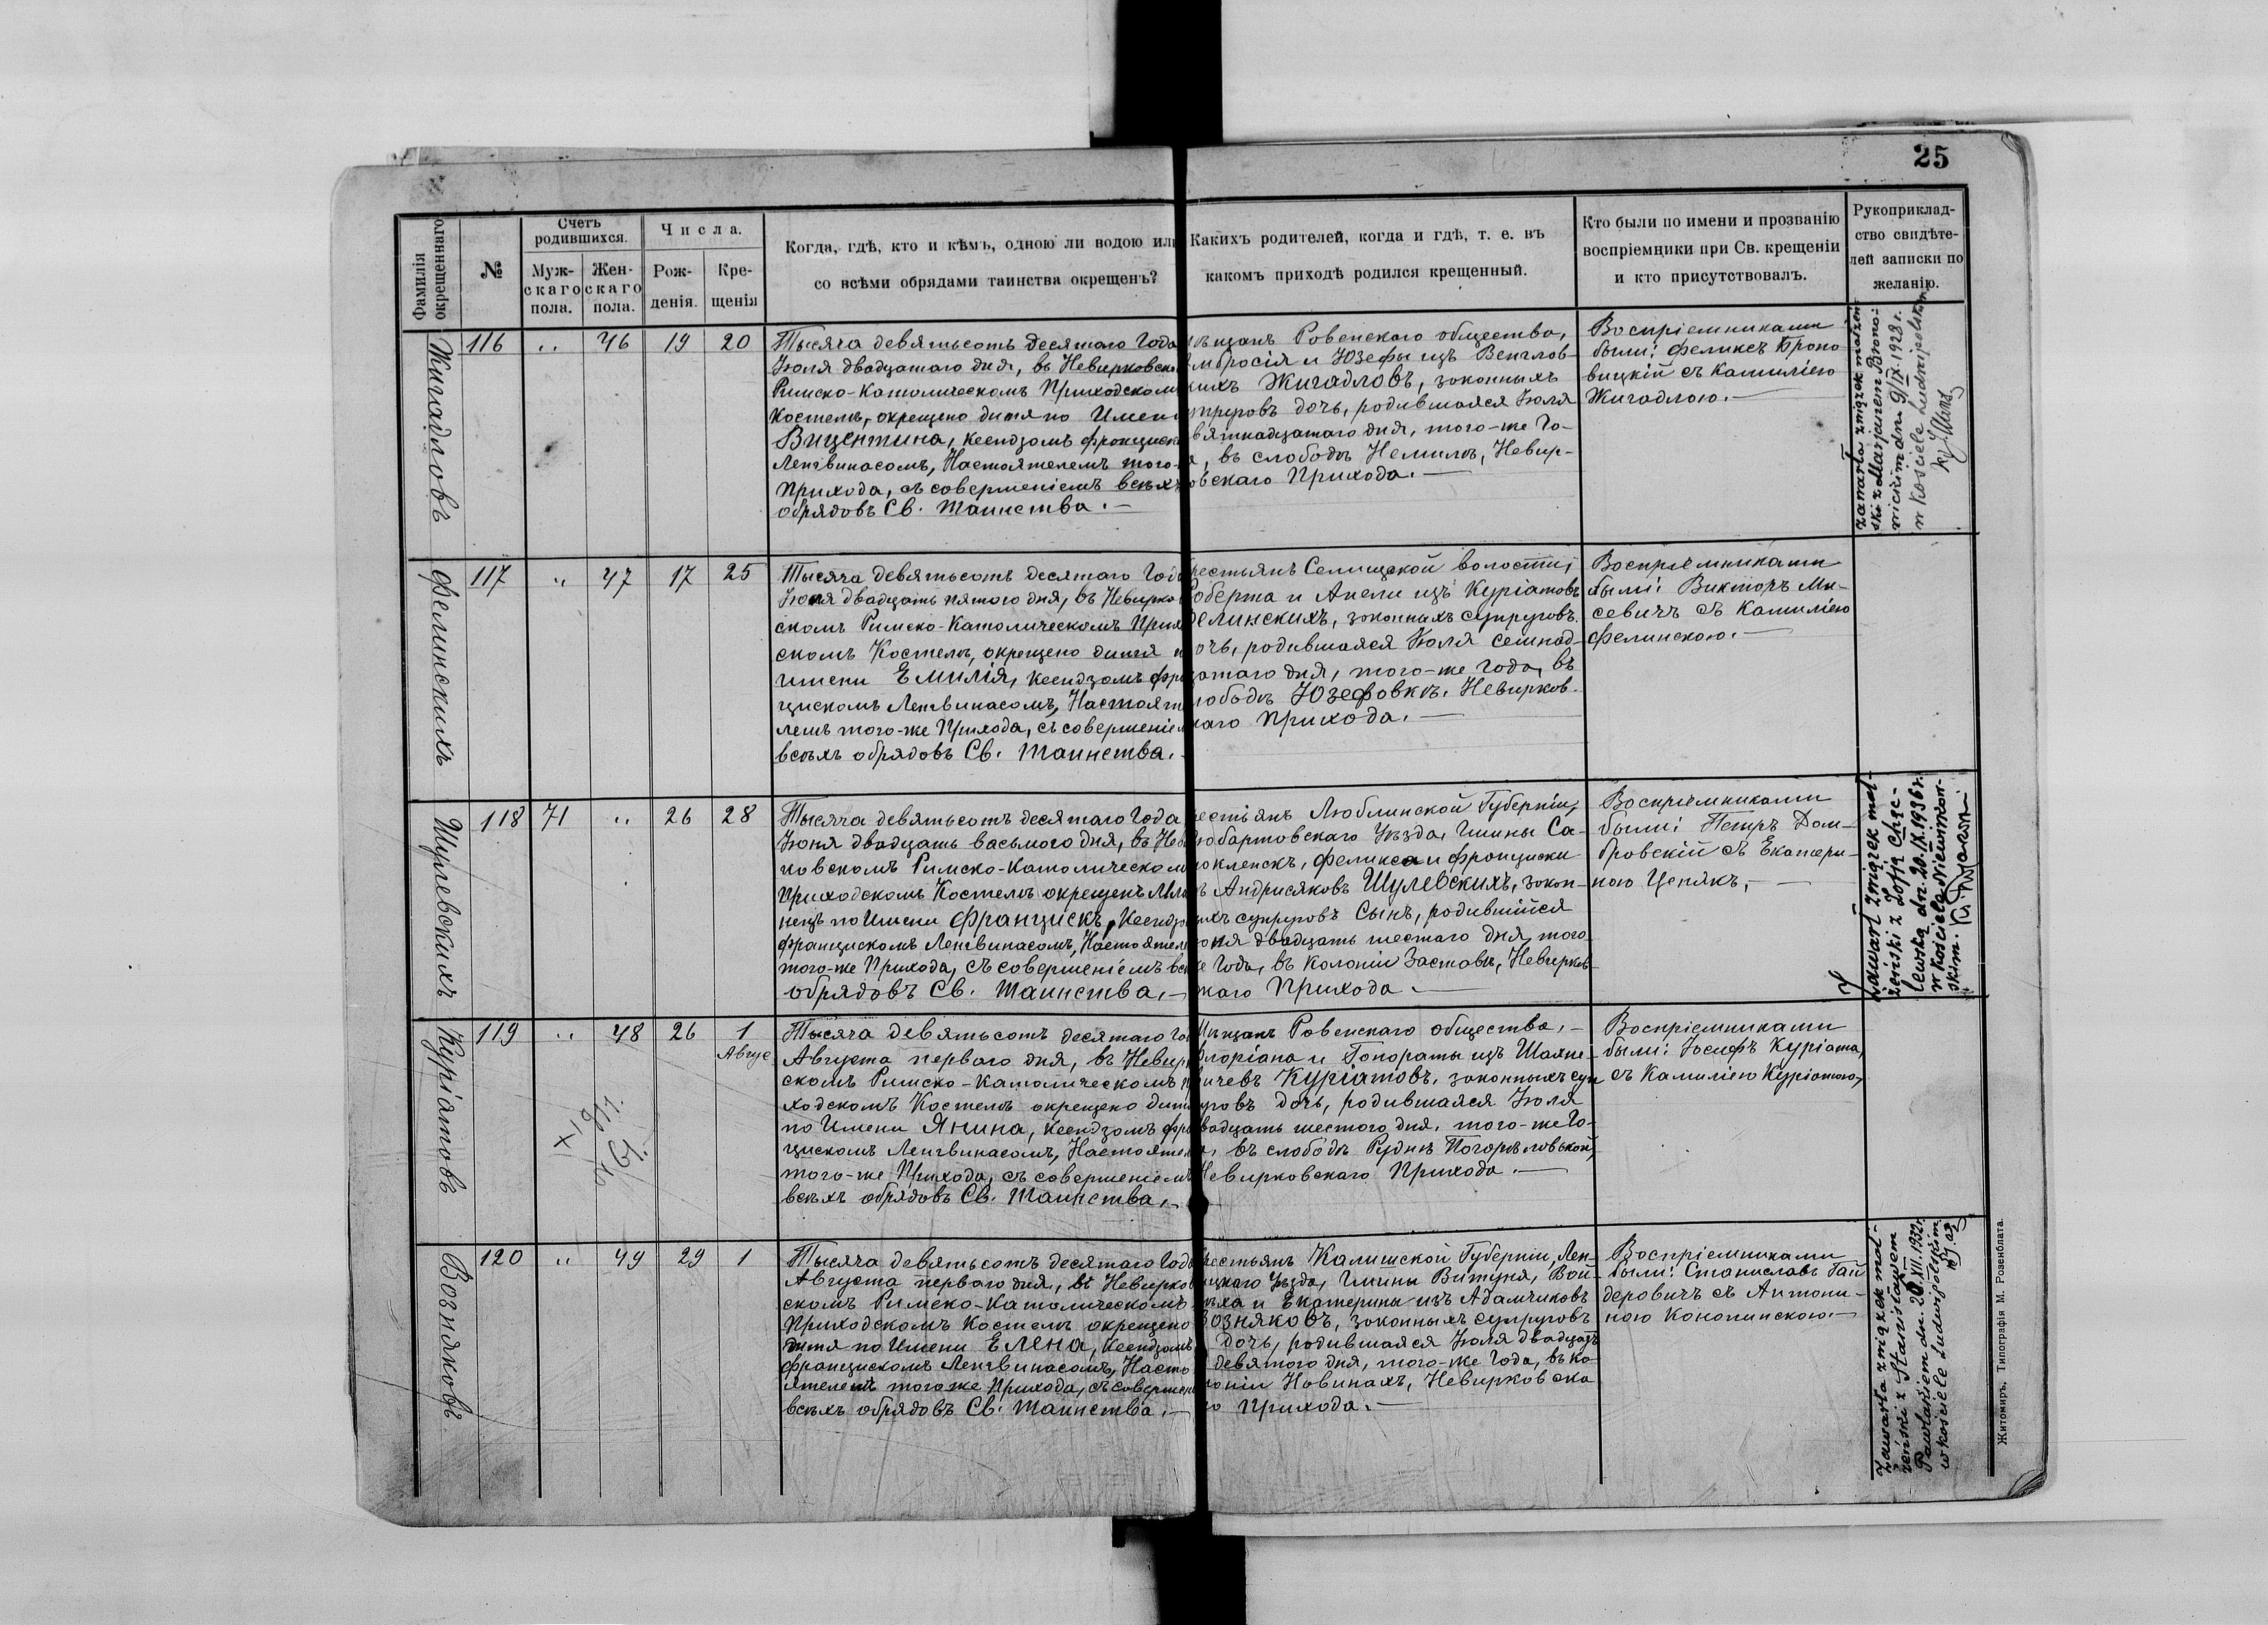 25
Фамилія окрещеннаго
№
Счетъ родившихся.
Муж-скаго пола.
Жен-скаго пола.
Числа.
Рож-денія.
Кре-щенія
Когда, гдѣ, кто и кѣмъ, одною ли водою или
со всѣми обрядами таинства окрещенъ?
Какихъ родителей, когда и гдѣ, т. е. въ
какомъ приходѣ родился крещенный.
Кто были по имени и прозванію
воспріемники при Св. крещеніи
и кто присутствовалъ.
Рукоприклад-
ство свидѣте-
лей записки по
желанію.
Жигадловъ
116 " 46 19 20
Тысяча девятьсотъ десятаго Года
Іюля двадцатаго дня, въ Невирковско
Римско-Католическомъ Приходском
Костелѣ, окрещено дитя по Имени
Вицентина, Ксендзомъ Францискo
Ленгвинасомъ, Настоятелемъ того-
Прихода, съ совершеніемъ всѣхъ
обрядовъ Св. Таинства.—
ѣщанъ Ровенскаго общества,
мбросія и Юзефы изъ Венглов-
кихъ Жигадловъ, законныхъ
упруговъ дочь, родившаяся Іюля
вятнадцатаго дня, того-же Го-
а, въ слободѣ Немилѣ, Невир-
овскаго Прихода.—
Воспріемниками
были: Феликсъ Броно
вицкій съ Камиліею
Жигадлою.—
Zawarła związek małżeń-
ski z Marjanem Brono-
wickim dn. 9/IX.1928 r.
w Kościele Ludwipolskim
Фелинскихъ
117 " 47 17 25
Тысяча девятьсотъ десятаго Года
Іюля двадцать пятаго дня, въ Невирко
скомъ Римско-Католическомъ Прих
скомъ Костелѣ, окрещено дитя п
имени Емилія, Ксендзомъ Фра
цискомъ Ленгвинасомъ, Настояте
лемъ того-же Прихода, съ совершеніем
всѣхъ обрядовъ Св. Таинства.
рестьянъ Селищской волости,
оберта и Анели изъ Куріатовъ
Фелинскихъ, законныхъ супруговъ
очь, родившаяся Іюля семнад-
цатаго дня, того-же Года, въ
лободѣ Юзефовкѣ, Невирков-
каго Прихода.—
Воспріемниками
были: Викторъ Ми-
севичъ съ Камиліею
Фелинскою.—
Шулевскихъ
118 71 " 26 28
Тысяча девятьсотъ десятаго Года
Іюня двадцать васьмого дня, въ Неви
ковскомъ Римско-Католическом
Приходскомъ Костелѣ окрещенъ Мла
нецъ по Имени Францискъ, Ксендзо
Францискомъ Ленгвинасомъ, Настоятел
того-же Прихода, съ совершеніемъ вс
обрядовъ Св. Таинства.—
рестіянъ Люблинской Губерніи,
юбартовскаго Уѣзда, Гмины Са-
Феликса и Франциски
ъ Андрисяковъ Шулевскихъ, закон-
ыхъ супруговъ Сынъ, родившійся
юня двадцать шестаго дня, того-
же Года, въ Колоніи Заставѣ, Невирков-
скаго Прихода.—
Воспріемниками
были: Петръ Дом-
бровскій съ Екатери-
ною Цепякъ.—
Zawarł związek mał-
żeński z Zofią Chęc-
lewską dn. 20.IX.1936 r.
w Kościele Niewirkow-
skim.
Куріатовъ
119 " 48 26 1
Авгус
Тысяча девятьсотъ десятаго Го
Августа перваго дня, въ Невирк
скомъ Римско-Католическомъ П
ходскомъ Костелѣ окрещено дитя
по Имени Янина, Ксендзомъ Фра
цискомъ Ленгвинасомъ, Настояте
того-же Прихода, съ совершеніемъ
всѣхъ обрядовъ Св. Таинства.—
Мѣщанъ Ровенскаго общества,—
лоріана и Гонораты изъ Шахне-
вичевъ Куріатовъ, законныхъ суп
уговъ дочь, родившаяся Іюля
вадцать шестого дня, того-же Го-
а, въ слободѣ Руднѣ Погорѣловской,
Невирковскаго Прихода.—
Воспріемниками
были: Іосифъ Куріата,
съ Камиліею Куріатою,
Возняковъ
120 " 49 29 1
Тысяча девятьсотъ десятаго Года
Августа перваго дня, въ Невирков
скомъ Римско-Католическомъ
Приходскомъ Костелѣ окрещено
дитя по Имени Елена, Ксендзомъ
Францискомъ Ленгвинасомъ, Насто
ятелемъ того же Прихода, съ соверше
всѣхъ обрядовъ Св. Таинства.—
рестьянъ Калишской Губерніи, Лен-
ицкаго Уѣзда, Гмины Витуня, Вой-
ѣха и Екатерины изъ Адамчиковъ
Возняковъ, законныхъ супруговъ
дочь, родившаяся Іюля двадцать
девятого дня, того-же Года, въ ко-
лоніи Новинахъ, Невирковска
го Прихода.—
Воспріемниками
были: Станиславъ Гай
деровичъ съ Антони-
ною Конопинскою.—
Zawarła związek mał-
żeński z Stanisławem
Pawlakiem dn. 20.XII.1932 r.
w kościele Ludwipolskim
Житомиръ, Типографія М. Розенблата.